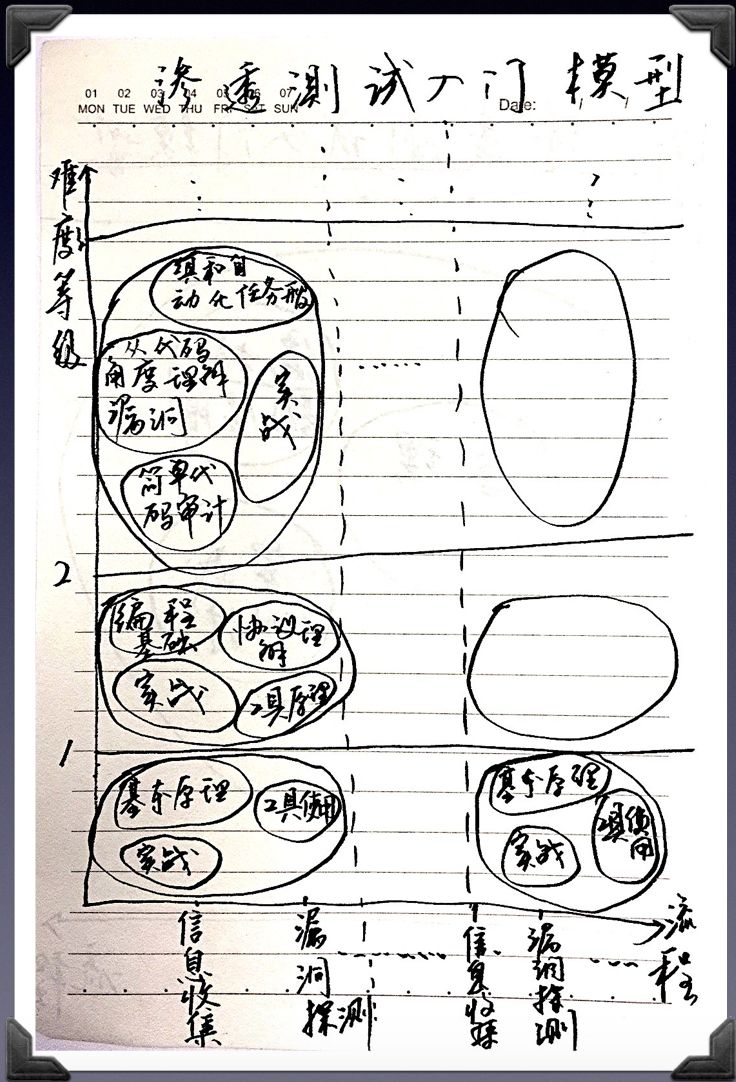 渗透测试入门模型
01 02 03 04 05 06 07
MON TUE WED THU FRI SAT SUN
Date: / /
难度等级
编和自
动化任务般
从代码
角度理解
漏洞
实战
简单代
码审计
2
编程
基础
协议理
解
实战
工具原理
1
基本原理
工具使用
实战
基本原理
工具使用
实战
信息收集
漏洞探测
信息收集
漏洞探测
流程